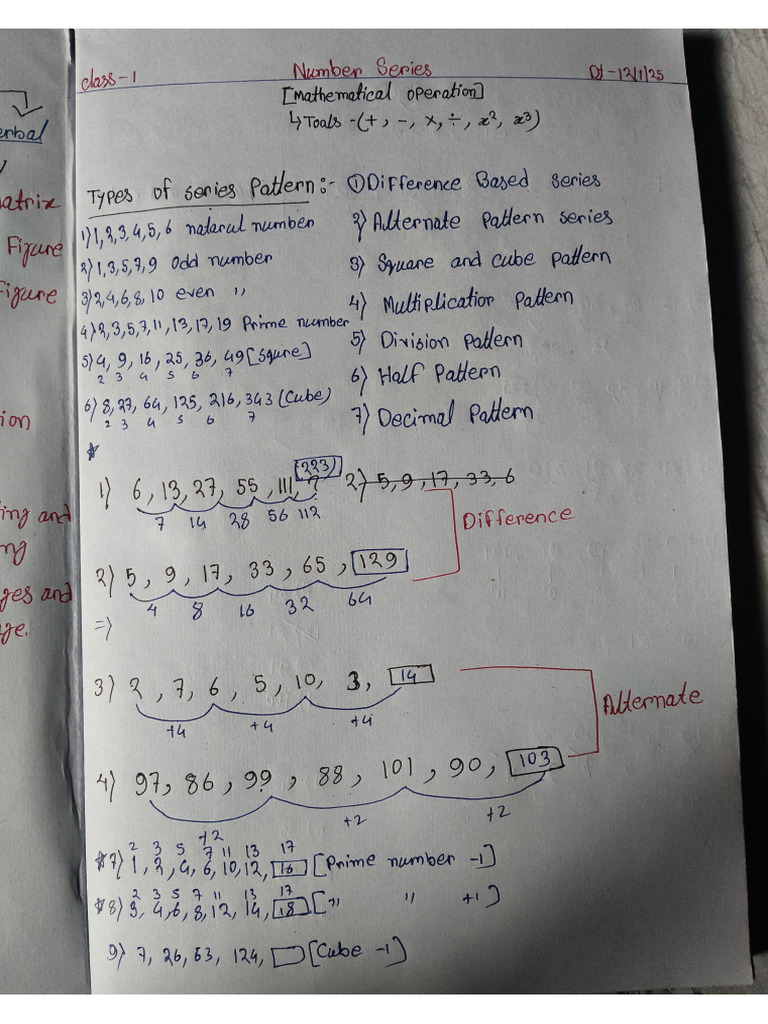 erbal
atrix
Figure
Figure
ion
ing and
ng
ges and
ge.
class-1 Number Series Dt-12/1/25
[Mathematical operation]
↳Toals-(+, -, ×, ÷, x², x³)
Types of series Pattern:- ①Difference Based series
1) 1,2,3,4,5,6 nataral number
2) Alternate pattern series
2) 1,3,5,7,9 Odd number
3) Square and cube pattern
3) 2,4,6,8,10 even ,,
4) Multiplication pattern
4) 2,3,5,7,11,13,17,19 Prime number
5) Division pattern
5) 4, 9, 16, 25, 36, 49 [Squre]
2 3 4 5 6 7
6) Half Pattern
6) 8,27, 64, 125, 216, 343 (Cube)
2 3 4 5 6 7
7) Decimal Pattern
*
223
1) 6, 13, 27, 55, 111, ? 2) 5, 9, 17, 33, 6
7 14 28 56 112
Difference
2) 5, 9, 17, 33, 65, 129
4 8 16 32 64
=>
3) 2, 7, 6, 5, 10, 3, 14
+4 +4 +4
Alternate
4) 97, 86, 99, 88, 101, 90, 103
+2 +2 +2
2 3 5 7 11 13 17
*7) 1, 2, 4, 6, 10, 12, 16 [Prime number -1]
2 3 5 7 11 13 17
*8) 3, 4, 6, 8, 12, 14, 18 [,, ,, +1]
9) 7, 26, 63, 124, [Cube -1]